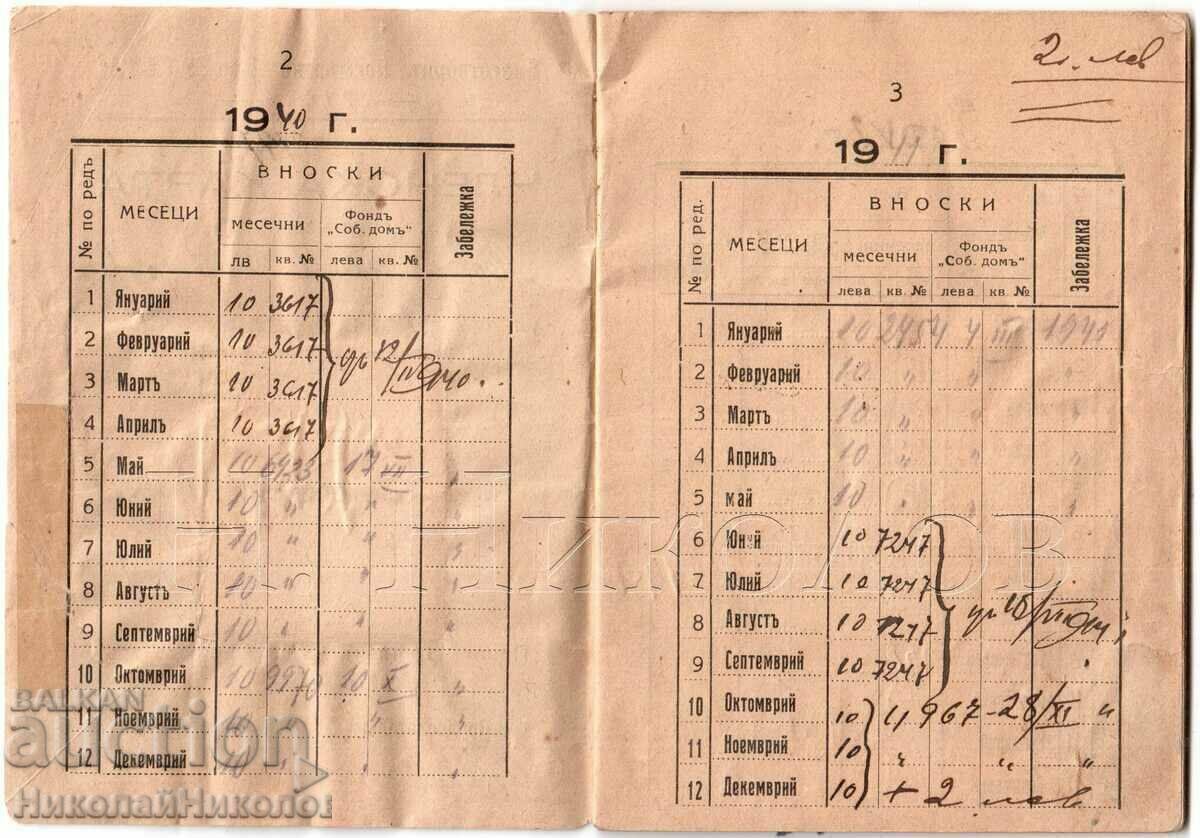 2
1940 г.
№ по редъ
МЕСЕЦИ
ВНОСКИ
Забележка
месечни
Фондъ „Соб. домъ“
лв кв. № лева кв. №
1 Януарий 10 3617
2 Февруарий 10 3617
3 Мартъ 10 3617
4 Априлъ 10 3617
5 Май 10 6933 17 VII
6 Юний 10 "
7 Юлий 10 " "
8 Августъ 10 " "
9 Септемврий 10 " "
10 Октомврий 10 9970 10 X "
11 Ноемврий 10 " "
12 Декемврий 10 "
2 лев
3
1941 г.
№ по ред.
МЕСЕЦИ
ВНОСКИ
Забележка
месечни
Фондъ „Соб. домъ“
лева кв. № лева кв. №
1 Януарий 10 2454 4 III 1941
2 Февруарий 10 " " "
3 Мартъ 10 " " "
4 Априлъ 10 " " "
5 май 10 " " "
6 Юний 10 7247
7 Юлий 10 7247
8 Августъ 10 7247
9 Септемврий 10 7247
10 Октомврий 10 4967 - 28/XI "
11 Ноемврий 10 " " "
12 Декемврий 10 + 2 лев
Н. НИКОЛОВ
BALKAN
auction
НиколайНиколов